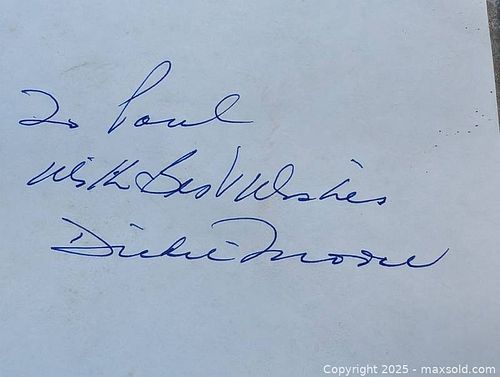 To Paul
With Best Wishes
Dickie Moore
Copyright 2025 - maxsold.com